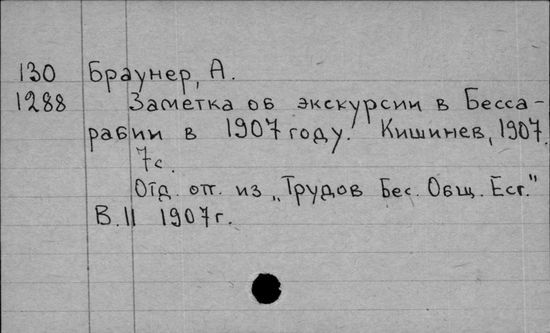 130 Браунер, А.
1288 Заметка об экскурсии в Бесса-
рабии в 1907 году. Кишинев, 1907.
7с.
Отд. отт. из „Трудов Бес. Общ. Ест."
В.II 1907г.